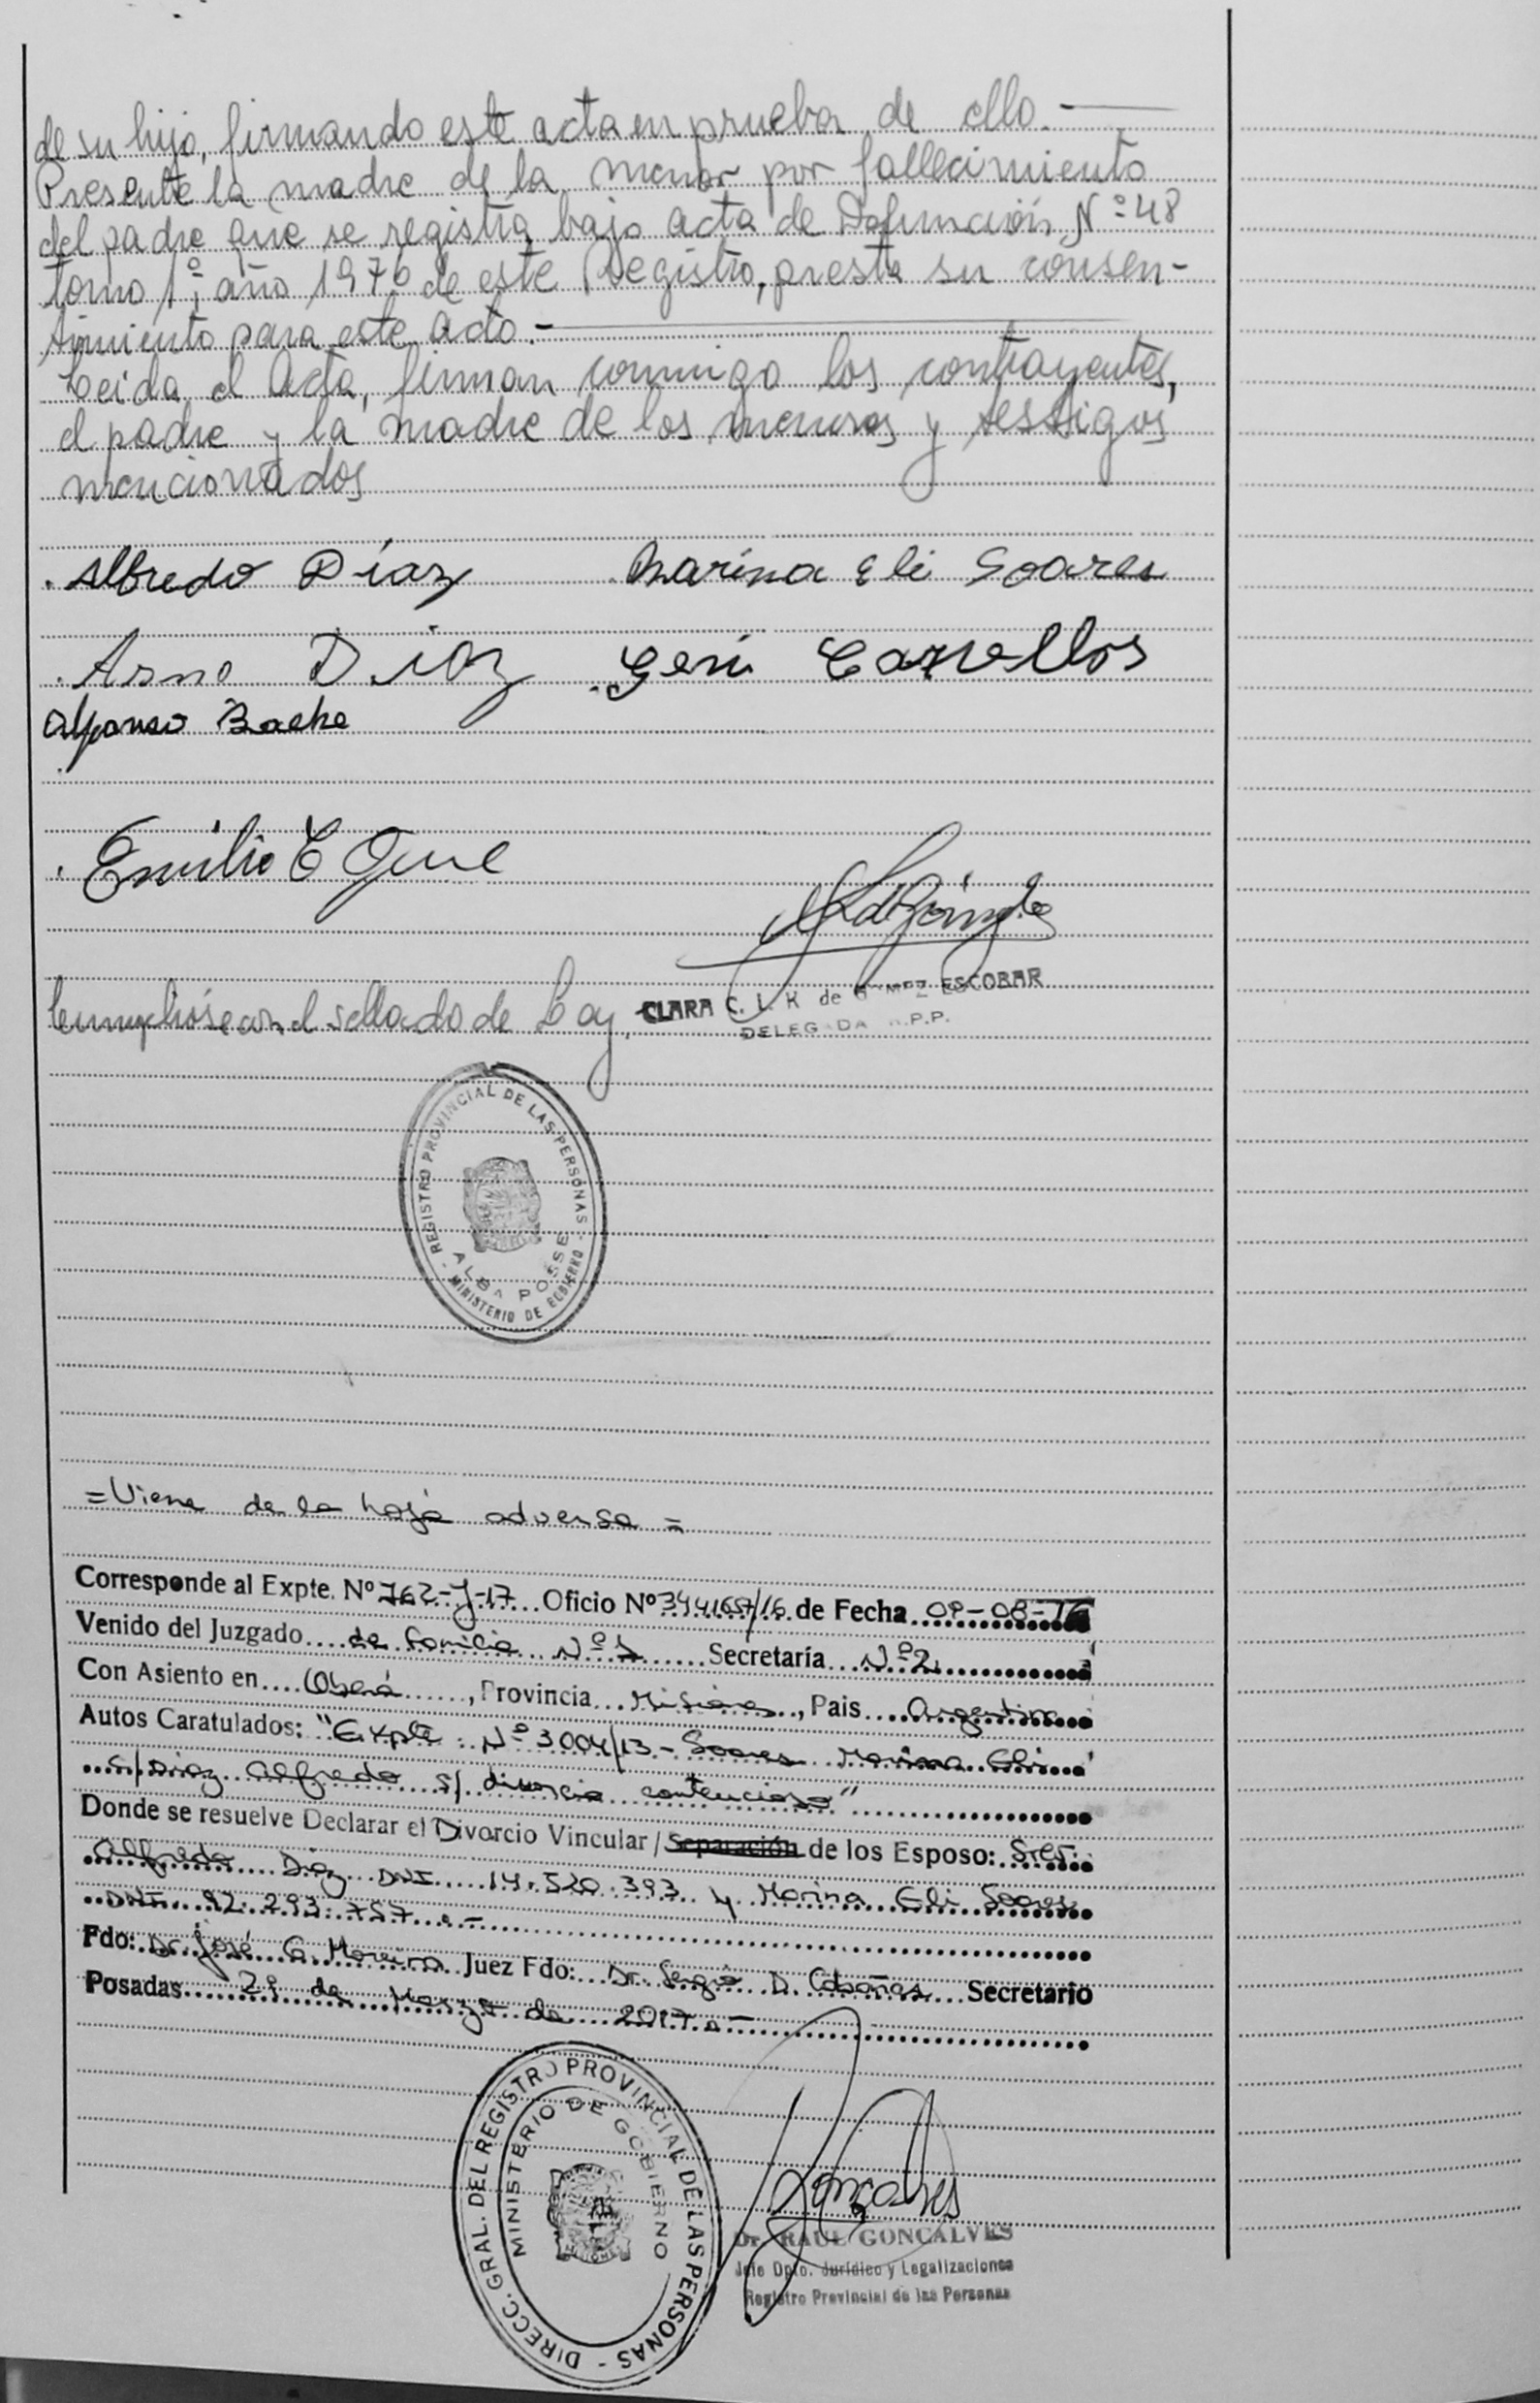 de su hijo, firmando este acta en prueba de ello.-
Presente la madre de la menor por fallecimiento
del padre que se registra bajo acta de Defunción Nº 48
tomo 1º; año 1976 de este Registro, presta su consen-
timiento para este acto.-
Leida el Acta, firman conmigo los contrayentes,
el padre y la madre de los menores y testigos
mencionados
Alfredo Díaz Marina Eli Soares
Arno Díaz Geni Carvellos
Alfonso
Emilio E
Cumplióse con el sellado de Ley.
CLARA C. I. K de ESCOBAR
DELEGADA R.P.P.
REGISTRO PROVINCIAL DE LAS PERSONAS
ALBA POSSE
MINISTERIO DE GOBIERNO
=Viene de la hoja adversa=
Corresponde al Expte. Nº 762-J-17 Oficio Nº de Fecha 09-08-16
Venido del Juzgado de Familia Nº 1 Secretaría Nº 2
Con Asiento en Oberá, Provincia Misiones, Pais Argentina
Autos Caratulados: "Expte. Nº 3004/13 - Soares Marina Eli
c/ Diaz Alfredo s/ divorcio contencioso"
Donde se resuelve Declarar el Divorcio Vincular / Separación de los Esposo: Sres.
Alfredo Diaz DNI 14.520.393 y Marina Eli Soares
DNI 92.293.757.-
Fdo: Dr. José G. Moreira Juez Fdo: Dr. Sergio D. Cabañas Secretario
Posadas 29 de Marzo de 2017.-
DIRECC. GRAL. DEL REGISTRO PROVINCIAL DE LAS PERSONAS
MINISTERIO DE GOBIERNO
Dr. RAUL GONCALVES
Jefe Dpto. Jurídico y Legalizaciones
Registro Provincial de las Personas